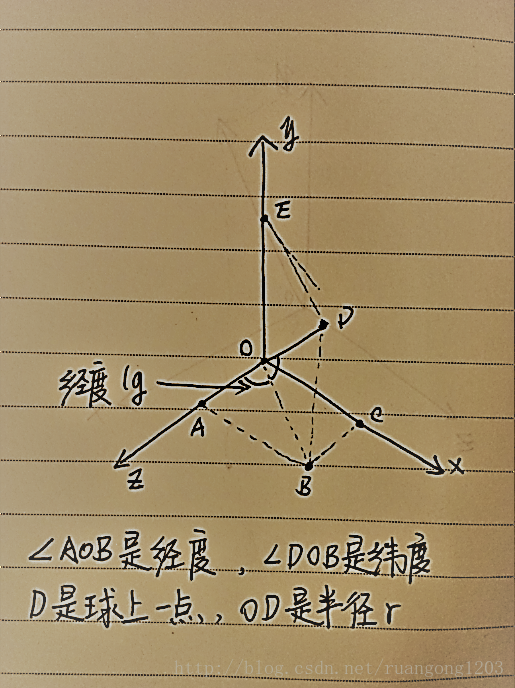 y
E
D
O
经度lg
A
C
Z
B
X
∠AOB是经度，∠DOB是纬度
D是球上一点，OD是半径r
http://blog.csdn.net/ruangong1203